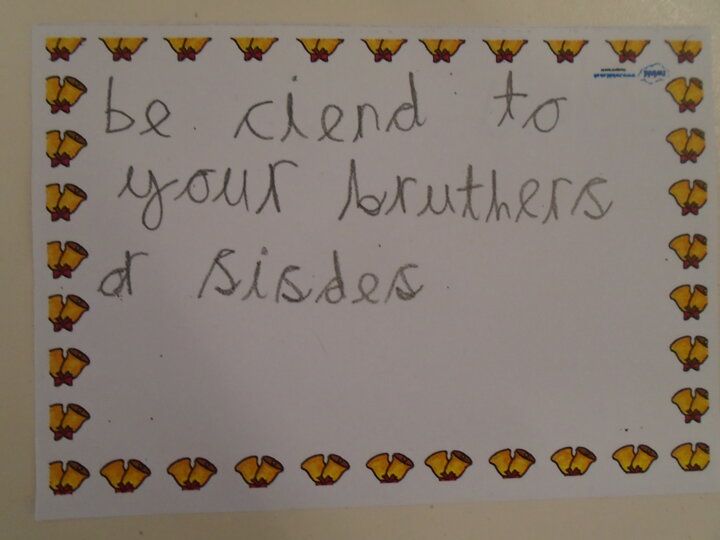 be ciend to
your bruthers
or sisdes
twinkl